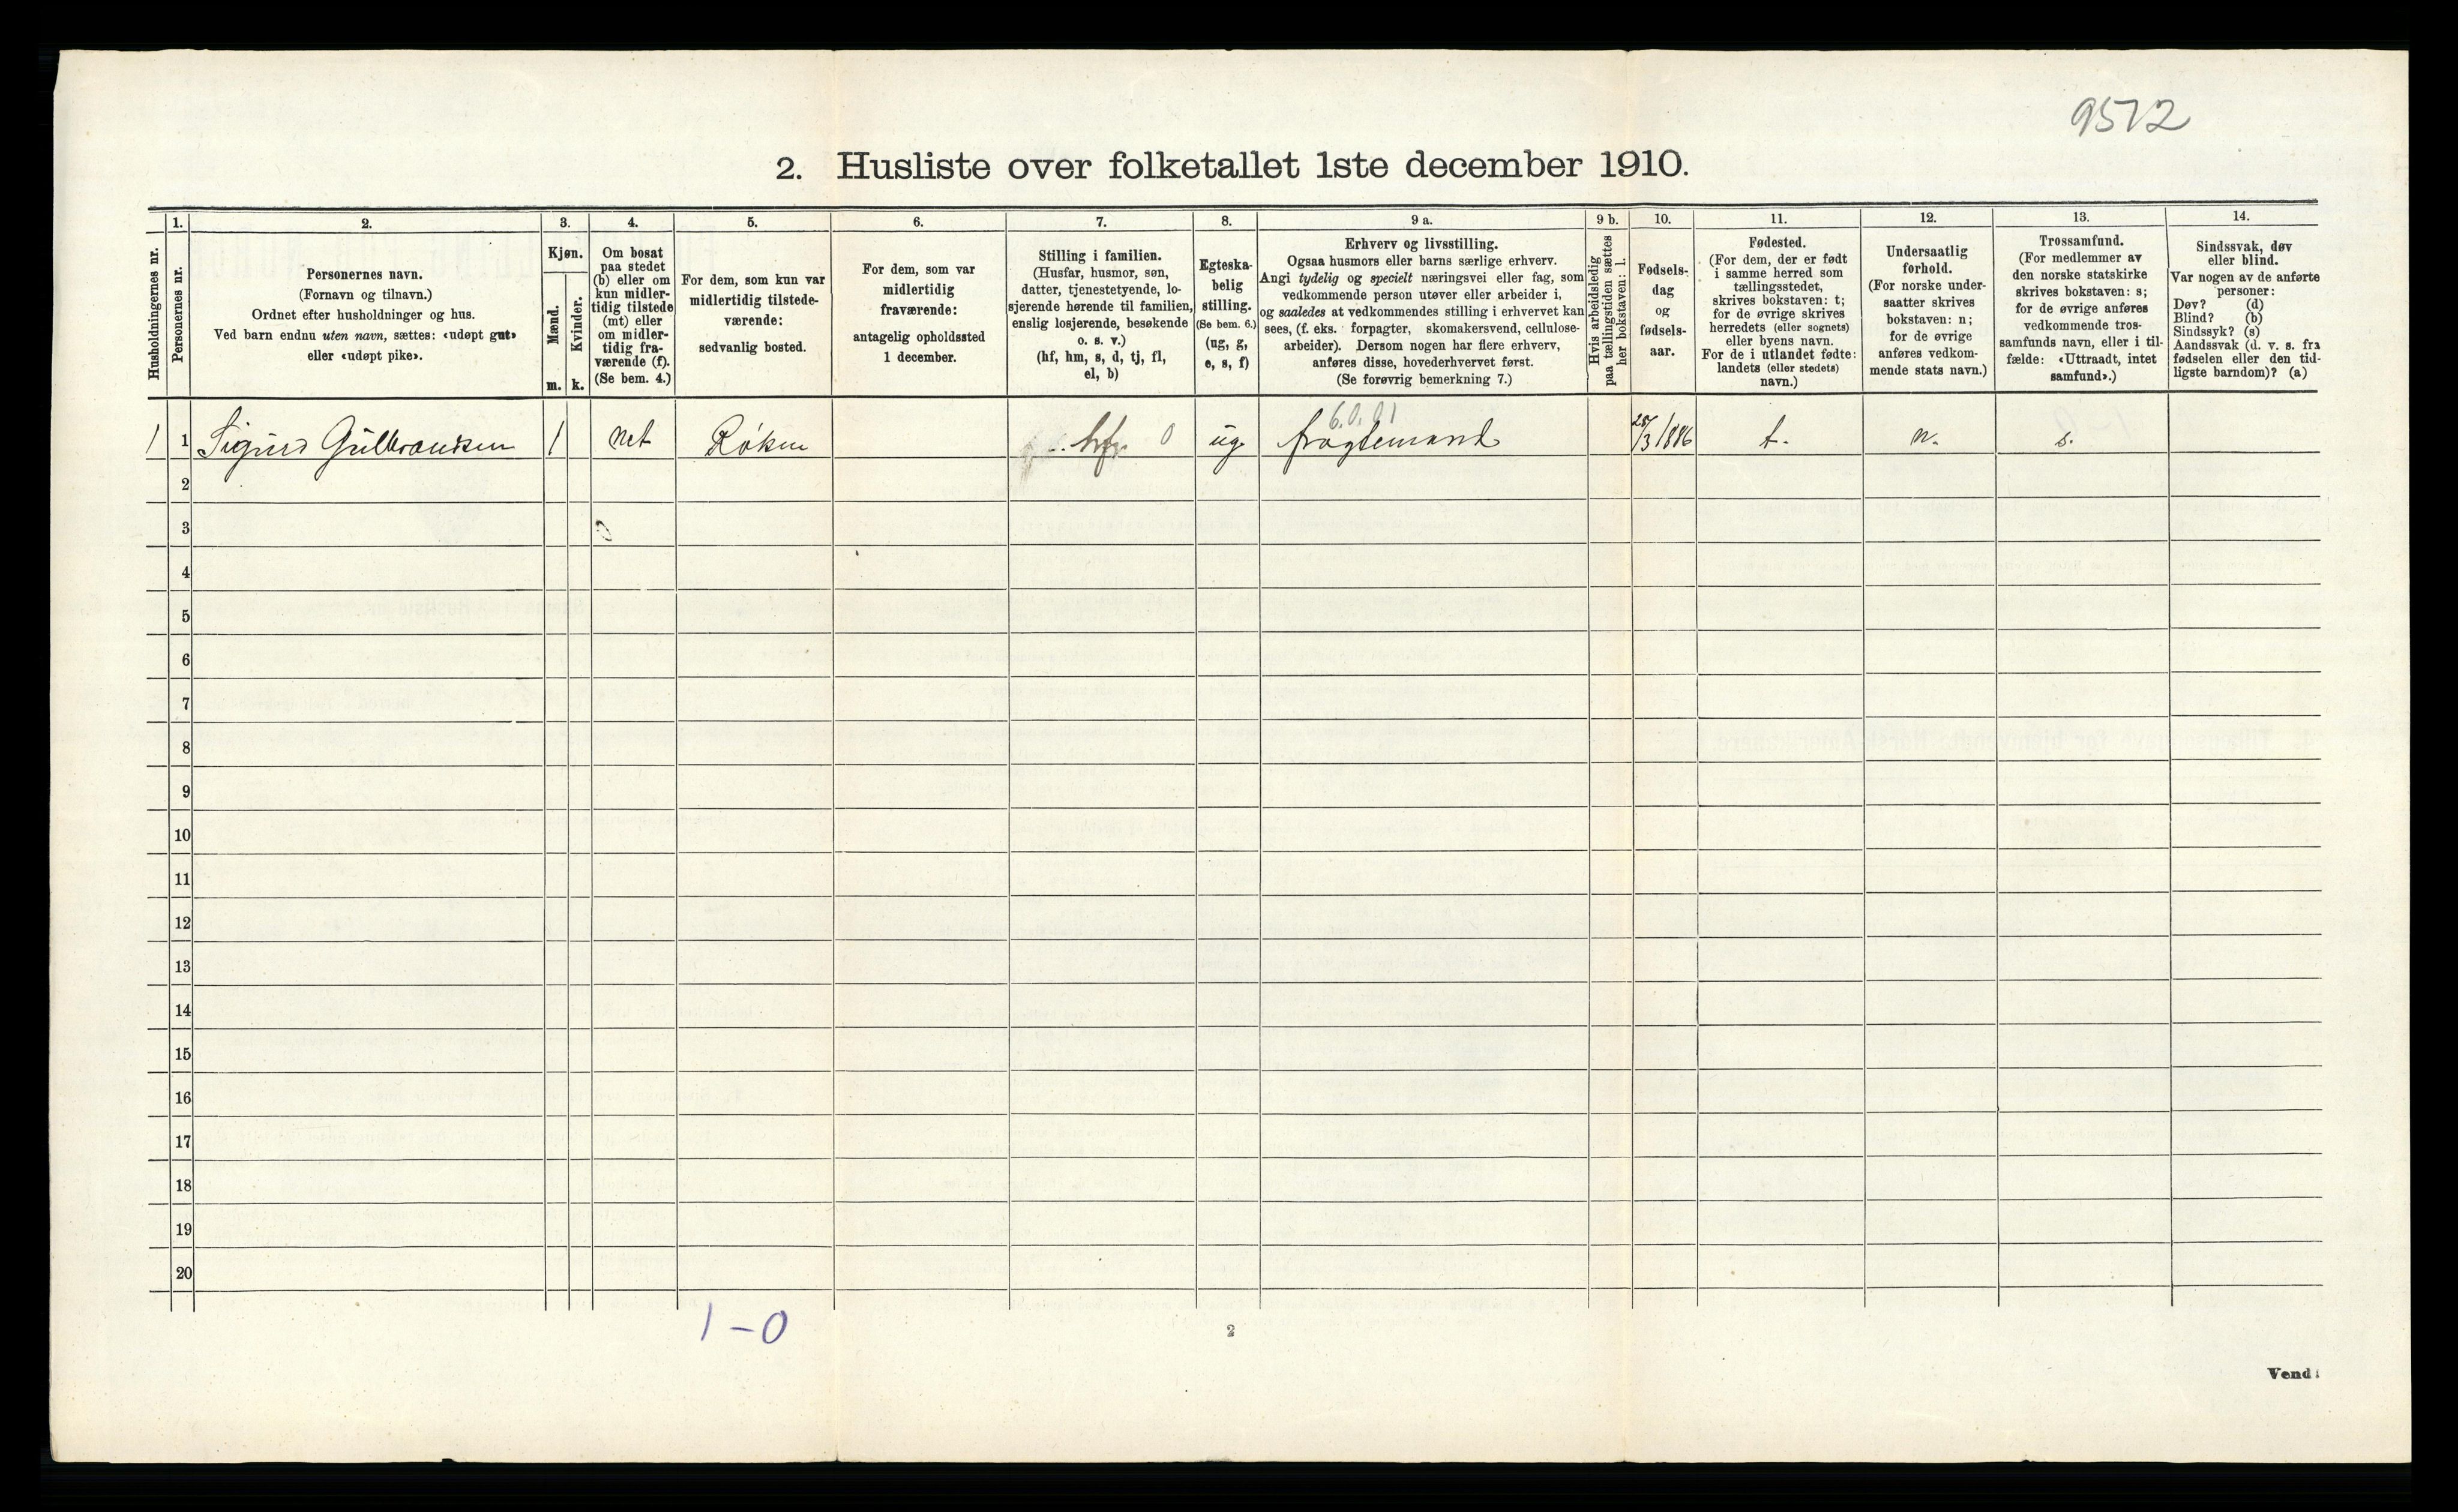 9572
2. Husliste over folketallet 1ste december 1910.
Husholdningernes nr.
1.
Personernes nr.
2.
Personernes navn.
(Fornavn og tilnavn.)
Ordnet efter husholdninger og hus.
Ved barn endnu uten navn, sættes: «udøpt gut»
eller «udøpt pike».
3.
Kjøn.
Mænd.
Kvinder.
m. k.
4.
Om bosat
paa stedet
(b) eller om
kun midler-
tidig tilstede
(mt) eller
om midler-
tidig fra-
værende (f).
(Se bem. 4.)
5.
For dem, som kun var
midlertidig tilstede-
værende:
sedvanlig bosted.
6.
For dem, som var
midlertidig
fraværende:
antagelig opholdssted
1 december.
7.
Stilling i familien.
(Husfar, husmor, søn,
datter, tjenestetyende, lo-
sjerende hørende til familien,
enslig losjerende, besøkende
o. s. v.)
(hf, hm, s, d, tj, fl,
el, b)
8.
Egteska-
belig
stilling.
(Se bem. 6.)
(ug, g,
e, s, f)
9 a.
Erhverv og livsstilling.
Ogsaa husmors eller barns særlige erhverv.
Angi tydelig og specielt næringsvei eller fag, som
vedkommende person utøver eller arbeider i,
og saaledes at vedkommendes stilling i erhvervet kan
sees, (f. eks. forpagter, skomakersvend, cellulose-
arbeider). Dersom nogen har flere erhverv,
anføres disse, hovederhvervet først.
(Se forøvrig bemerkning 7.)
9 b.
Hvis arbeidsledig
paa tællingstiden sættes
her bokstaven: l.
10.
Fødsels-
dag
og
fødsels-
aar.
11.
Fødested.
(For dem, der er født
i samme herred som
tællingsstedet,
skrives bokstaven: t;
for de øvrige skrives
herredets (eller sognets)
eller byens navn.
For de i utlandet fødte:
landets (eller stedets)
navn.)
12.
Undersaatlig
forhold.
(For norske under-
saatter skrives
bokstaven: n;
for de øvrige
anføres vedkom-
mende stats navn.)
13.
Trossamfund.
(For medlemmer av
den norske statskirke
skrives bokstaven: s;
for de øvrige anføres
vedkommende tros-
samfunds navn, eller i til-
fælde: «Uttraadt, intet
samfund».)
14.
Sindssvak, døv
eller blind.
Var nogen av de anførte
personer:
Døv? (d)
Blind? (b)
Sindssyk? (s)
Aandssvak (d. v. s. fra
fødselen eller den tid-
ligste barndom)? (a)
1 1 Sigurd Gulbrandsen 1 mt Røken hf. 0 ug. fragtemand t. n. s.
2
3
4
5
6
7
8
9
10
11
12
13
14
15
16
17
18
19
20
1-0
2
Vend!